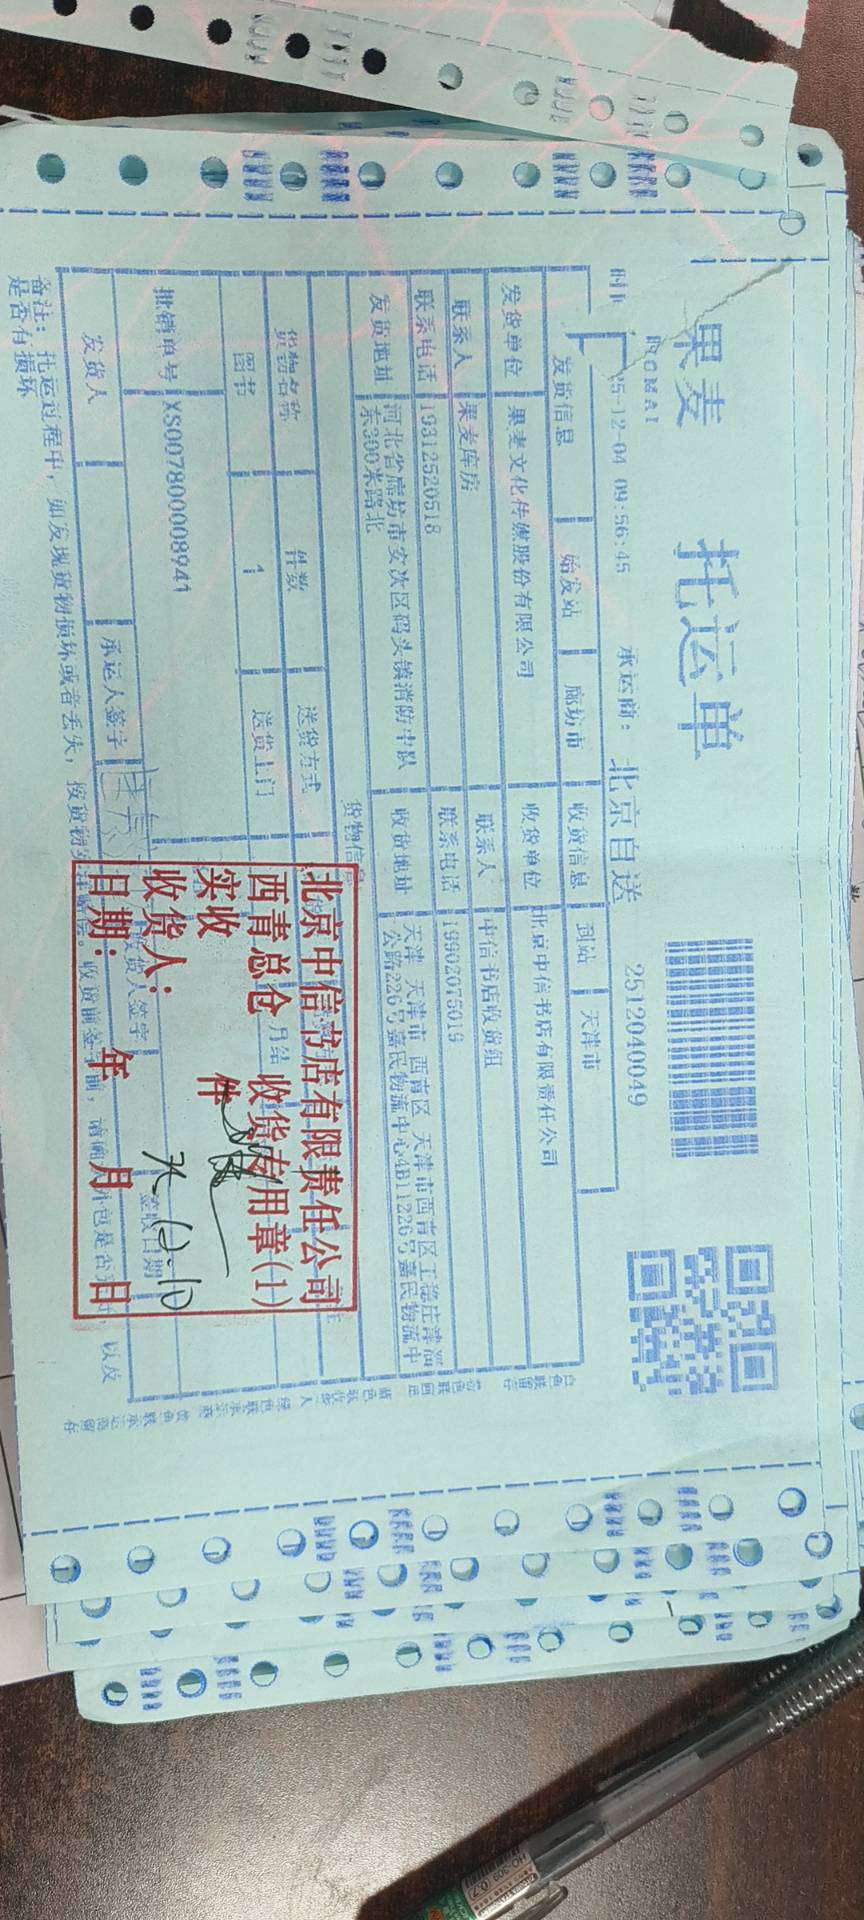 果麦 托运单
GOMAI
25-12-04 09:56:45 承运商: 北京自送 2512040049
发货信息 始发站 廊坊市 收货信息 到站 天津市
发货单位 果麦文化传媒股份有限公司 收货单位 北京中信书店有限责任公司
联系人 果麦库房 联系人 中信书店收货组
联系电话 19312520518 联系电话 19902075019
发货地址 河北省廊坊市安次区码头镇消防中队东300米路北 收货地址 天津 天津市 西青区 天津市西青区王稳庄津淄公路226号嘉民物流中心4B11226号嘉民物流中
货物信息
货物名称 件数 送货方式
图书 1 送货上门 月结
批销单号 XS007800008941
发货人 承运人签字 收货人签字 签收日期
备注: 托运过程中, 如发现货物损坏或者丢失, 按货物
收货前签字前, 请 外包是否完 以及
是否有损坏
白色联留存 蓝色联收货人
北京中信书店有限责任公司
西青总仓 收货专用章(1)
实收 件
收货人:
日期: 年 月 日